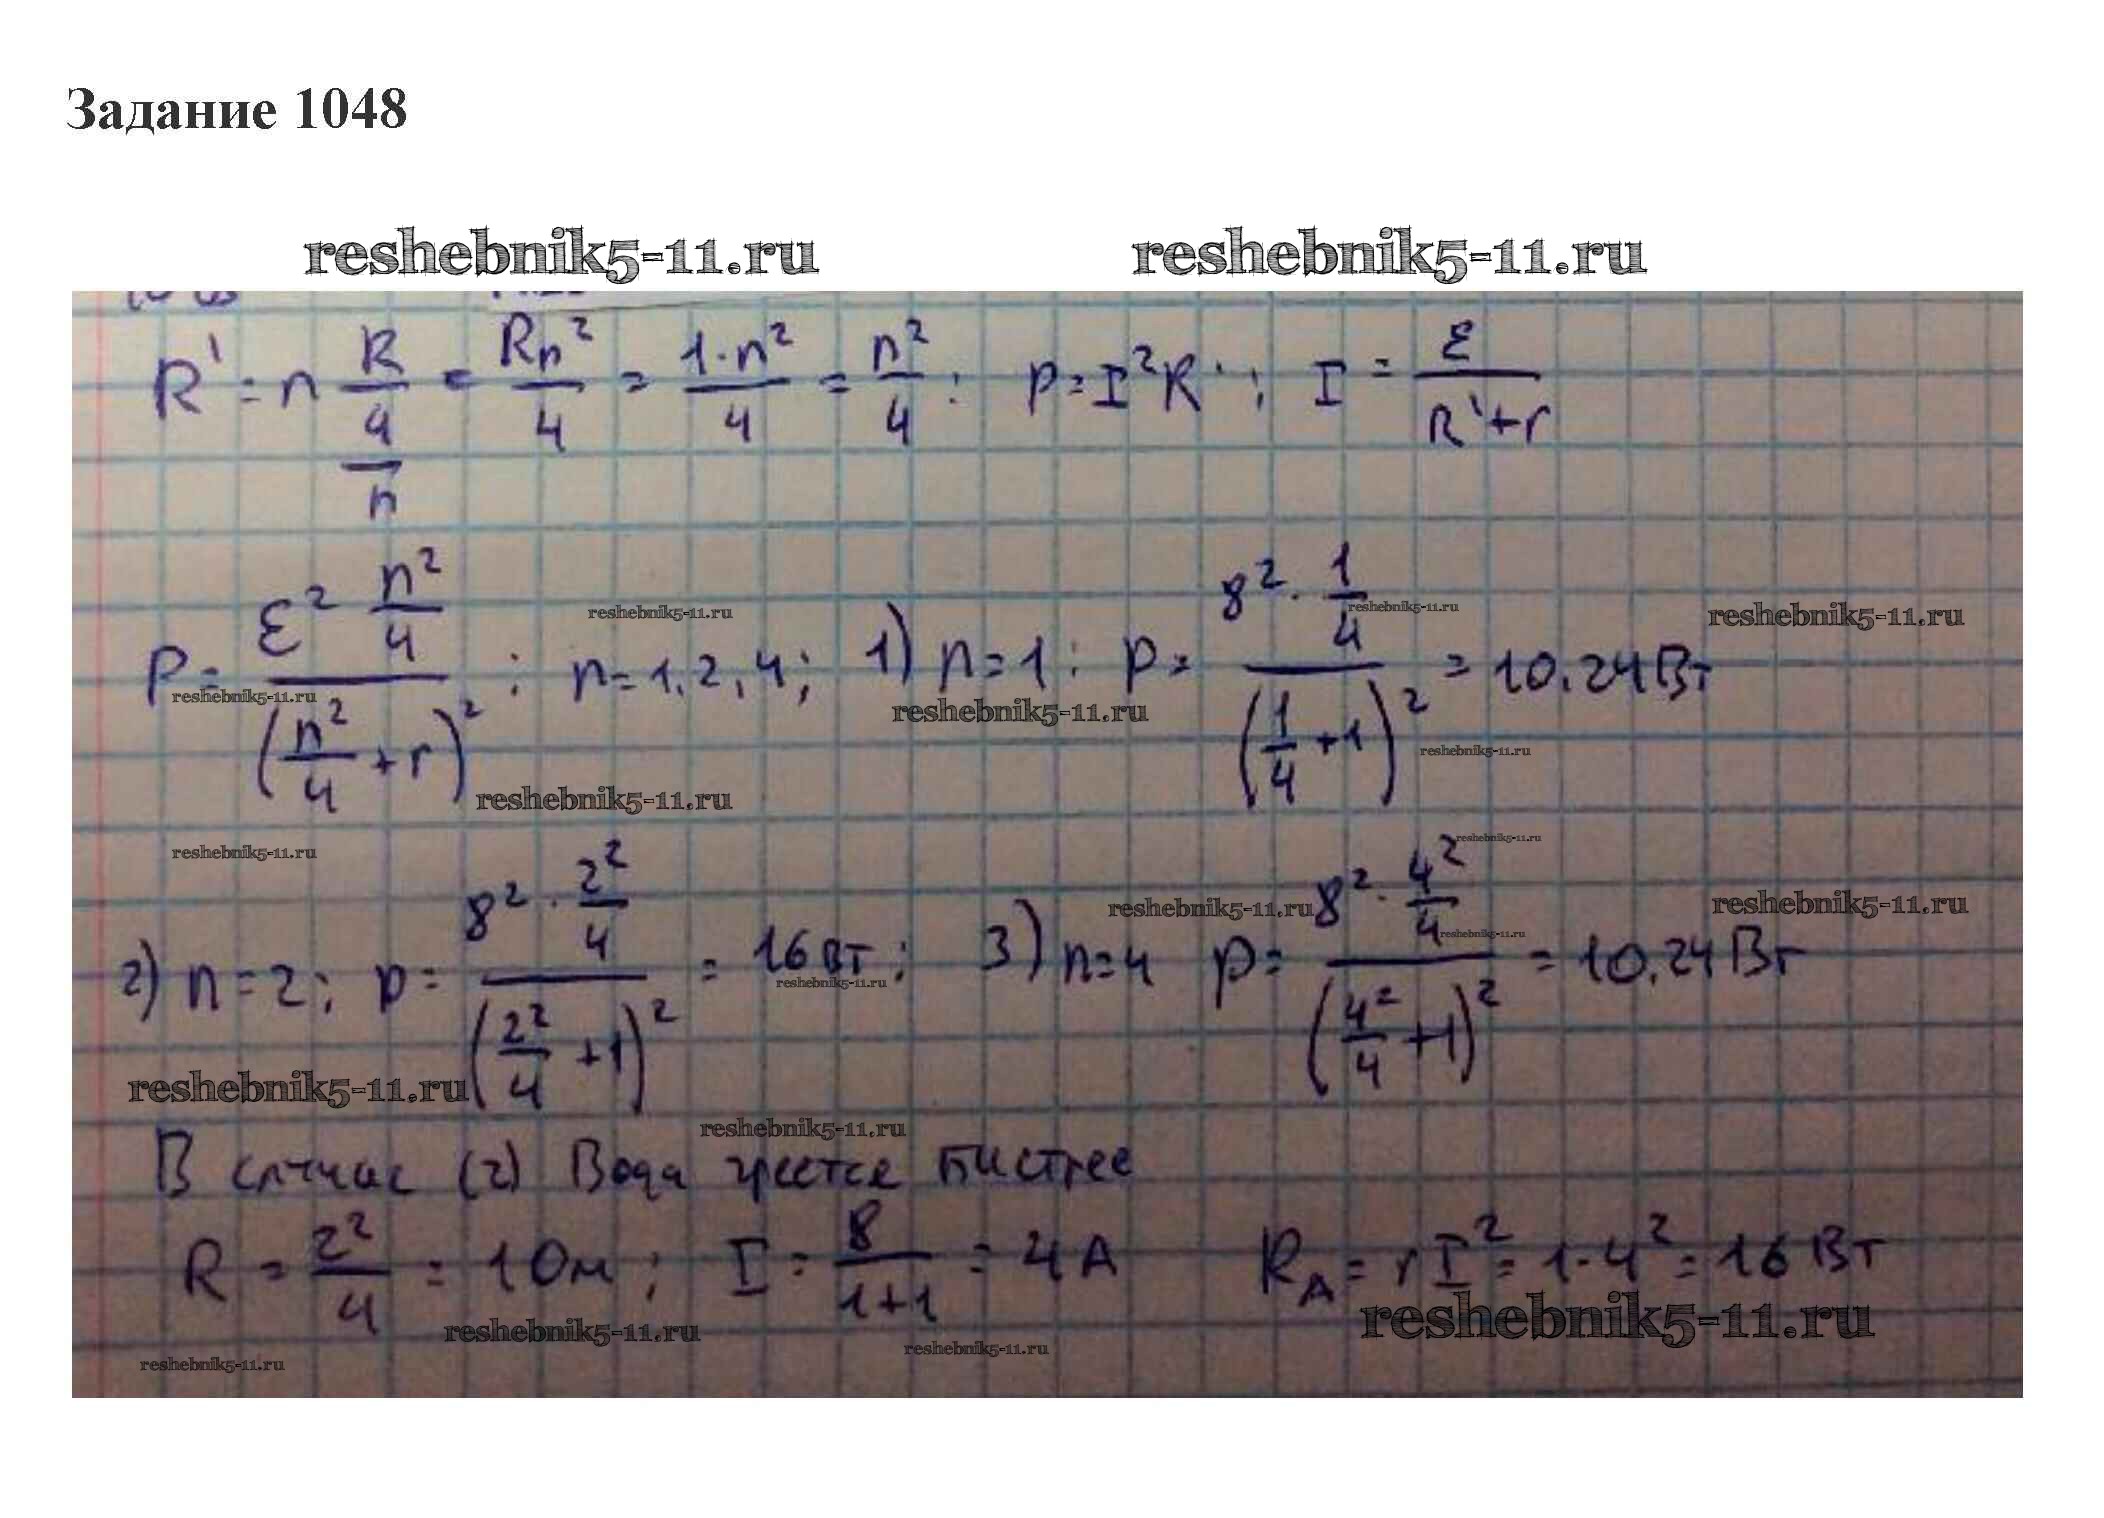 Задание 1048
reshebnik5-11.ru reshebnik5-11.ru
R' = n R/4/n = Rn²/4 = 1·n²/4 = n²/4 ; P = I²R' ; I = ε/(R'+r)
P = ε² n²/4 / (n²/4 + r)² ; n = 1, 2, 4 ; 1) n = 1 ; P = 8² · 1/4 / (1/4 + 1)² = 10.24 Вт
reshebnik5-11.ru reshebnik5-11.ru reshebnik5-11.ru
reshebnik5-11.ru reshebnik5-11.ru reshebnik5-11.ru
reshebnik5-11.ru
reshebnik5-11.ru reshebnik5-11.ru
2) n = 2 ; P = 8² · 2²/4 / (2²/4 + 1)² = 16 Вт ; 3) n = 4 P = 8² · 4²/4 / (4²/4 + 1)² = 10.24 Вт
reshebnik5-11.ru reshebnik5-11.ru reshebnik5-11.ru
reshebnik5-11.ru
reshebnik5-11.ru
reshebnik5-11.ru
В случае (2) Вода греется
R = 2²/4 = 1 Ом ; I = 8/(1+1) = 4 А R_A = rI² = 1·4² = 16 Вт
reshebnik5-11.ru reshebnik5-11.ru
reshebnik5-11.ru reshebnik5-11.ru